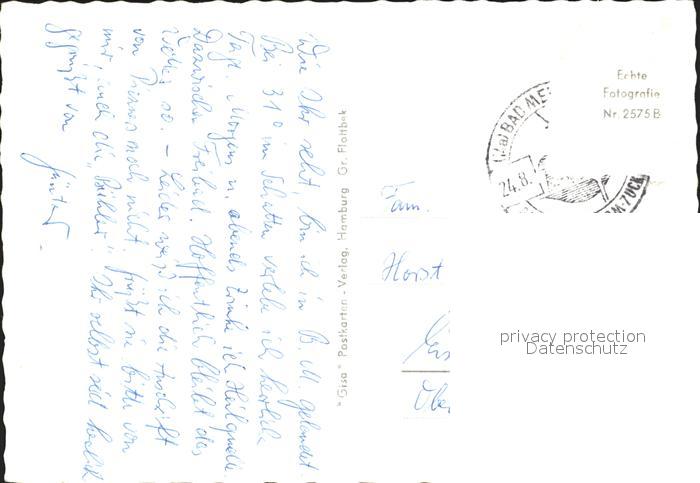 Wie Ihr seht, bin ich in B. M. gelandet.
Bei 31° im Schatten verlebe ich herrliche
Tage. Morgens u. abends trinke ich Heilquelle.
Dazwischen Freibad. Hoffentlich bleibt das
Wetter so. – Leider weiß ich die Anschrift
von noch nicht, grüßt sie bitte von
mir, auch die „ “. Ihr selbst seid herzlich
gegrüßt von
Günter.
"Gisa" Postkarten-Verlag, Hamburg Gr. Flottbek
Echte
Fotografie
Nr. 2575 B
BAD ME
24.8.
Fam.
Horst
Obe
privacy protection
Datenschutz